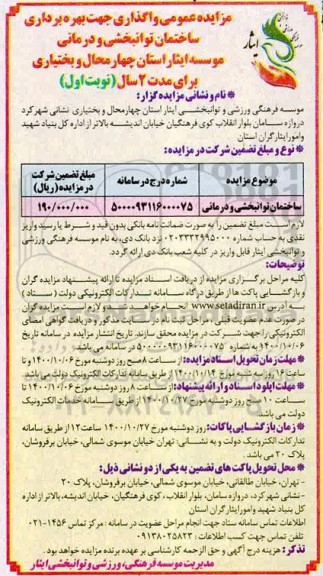 مزایده عمومی واگذاری جهت بهره برداری
ساختمان توانبخشی و درمانی
موسسه ایثار استان چهار محال و بختیاری
برای مدت ۲ سال (نوبت اول)
ایثار
* نام و نشانی مزایده گزار:
موسسه فرهنگی ورزشی و توانبخشی ایثار استان چهارمحال و بختیاری نشانی شهرکرد
دروازه سامان بلوار انقلاب کوی فرهنگیان خیابان اندیشه بالاتر از اداره کل بنیاد شهید
و امور ایثارگران استان
* نوع و مبلغ تضمین شرکت در مزایده:
موضوع مزایده شماره درج در سامانه مبلغ تضمین شرکت در مزایده (ریال)
ساختمان توانبخشی و درمانی ۵۰۰۰۰۹۳۱۱۶۰۰۰۰۷۵ ۱۹۰/۰۰۰/۰۰۰
لازم است مبلغ تضمین را به صورت ضمانت نامه بانکی بدون قید و شرط یا رسید واریز
نقدی به حساب شماره نزد بانک دی، به نام موسسه فرهنگی ورزشی
و توانبخشی ایثار قابل واریز در کلیه شعب بانک دی ارائه گردد.
توضیحات:
کلیه مراحل برگزاری مزایده از دریافت اسناد مزایده تا ارائه پیشنهاد مزایده گران
و بازگشایی پاکت ها از طریق درگاه سامانه تدارکات الکترونیکی دولت (ستاد)
به آدرس www.setadiran.ir انجام خواهد شد و لازم است مزایده گران
در صورت عدم عضویت قبلی، مراحل ثبت نام در سایت مذکور و دریافت گواهی امضای
الکترونیکی را جهت شرکت در مزایده محقق سازند. تاریخ انتشار مزایده در سامانه تاریخ
۱۴۰۰/۱۰/۰۶ به شماره ۵۰۰۰۰۹۳۱۱۶۰۰۰۰۷۵ در سامانه می باشد
* مهلت زمان تحویل اسناد مزایده: از ساعت ۸ صبح روز دوشنبه مورخ ۱۴۰۰/۱۰/۰۶ تا
ساعت ۱۶ روز سه شنبه مورخ ۱۴۰۰/۱۰/۱۴ از طریق سامانه تدارکات الکترونیک دولت می باشد
* مهلت آپلود اسناد و ارائه پیشنهاد: ساعت ۸ روز دوشنبه مورخ ۱۴۰۰/۱۰/۰۶ تا
ساعت ۱۰ صبح روز دوشنبه مورخ ۱۴۰۰/۱۰/۲۷ از طریق سامانه خدمات الکترونیک
دولت می باشد
* زمان بازگشایی پاکات: روز دوشنبه مورخ ۱۴۰۰/۱۰/۲۷ ساعت ۱۲ از طریق سامانه
تدارکات الکترونیک دولت و به نشانی: تهران خیابان موسوی شمالی، خیابان برفروشان،
پلاک ۲۰ می باشد
* محل تحویل پاکت های تضمین به یکی از دو نشانی ذیل:
- تهران، خیابان طالقانی، خیابان موسوی شمالی، خیابان برفروشان، پلاک ۲۰
- نشانی شهرکرد، دروازه سامان، بلوار انقلاب، کوی فرهنگیان، خیابان اندیشه، بالاتر از اداره
کل بنیاد شهید و امور ایثارگران استان
اطلاعات تماس سامانه ستاد جهت انجام مراحل عضویت در سامانه : مرکز تماس ۱۴۵۶-۰۲۱
تلفن تماس جهت کسب اطلاعات: ۰۹۱۳۸۰۲۵۸۲۳
تذکر: هزینه درج آگهی و حق الزحمه کارشناسی بر عهده برنده مزایده خواهد بود.
مدیریت موسسه فرهنگی، ورزشی و توانبخشی ایثار